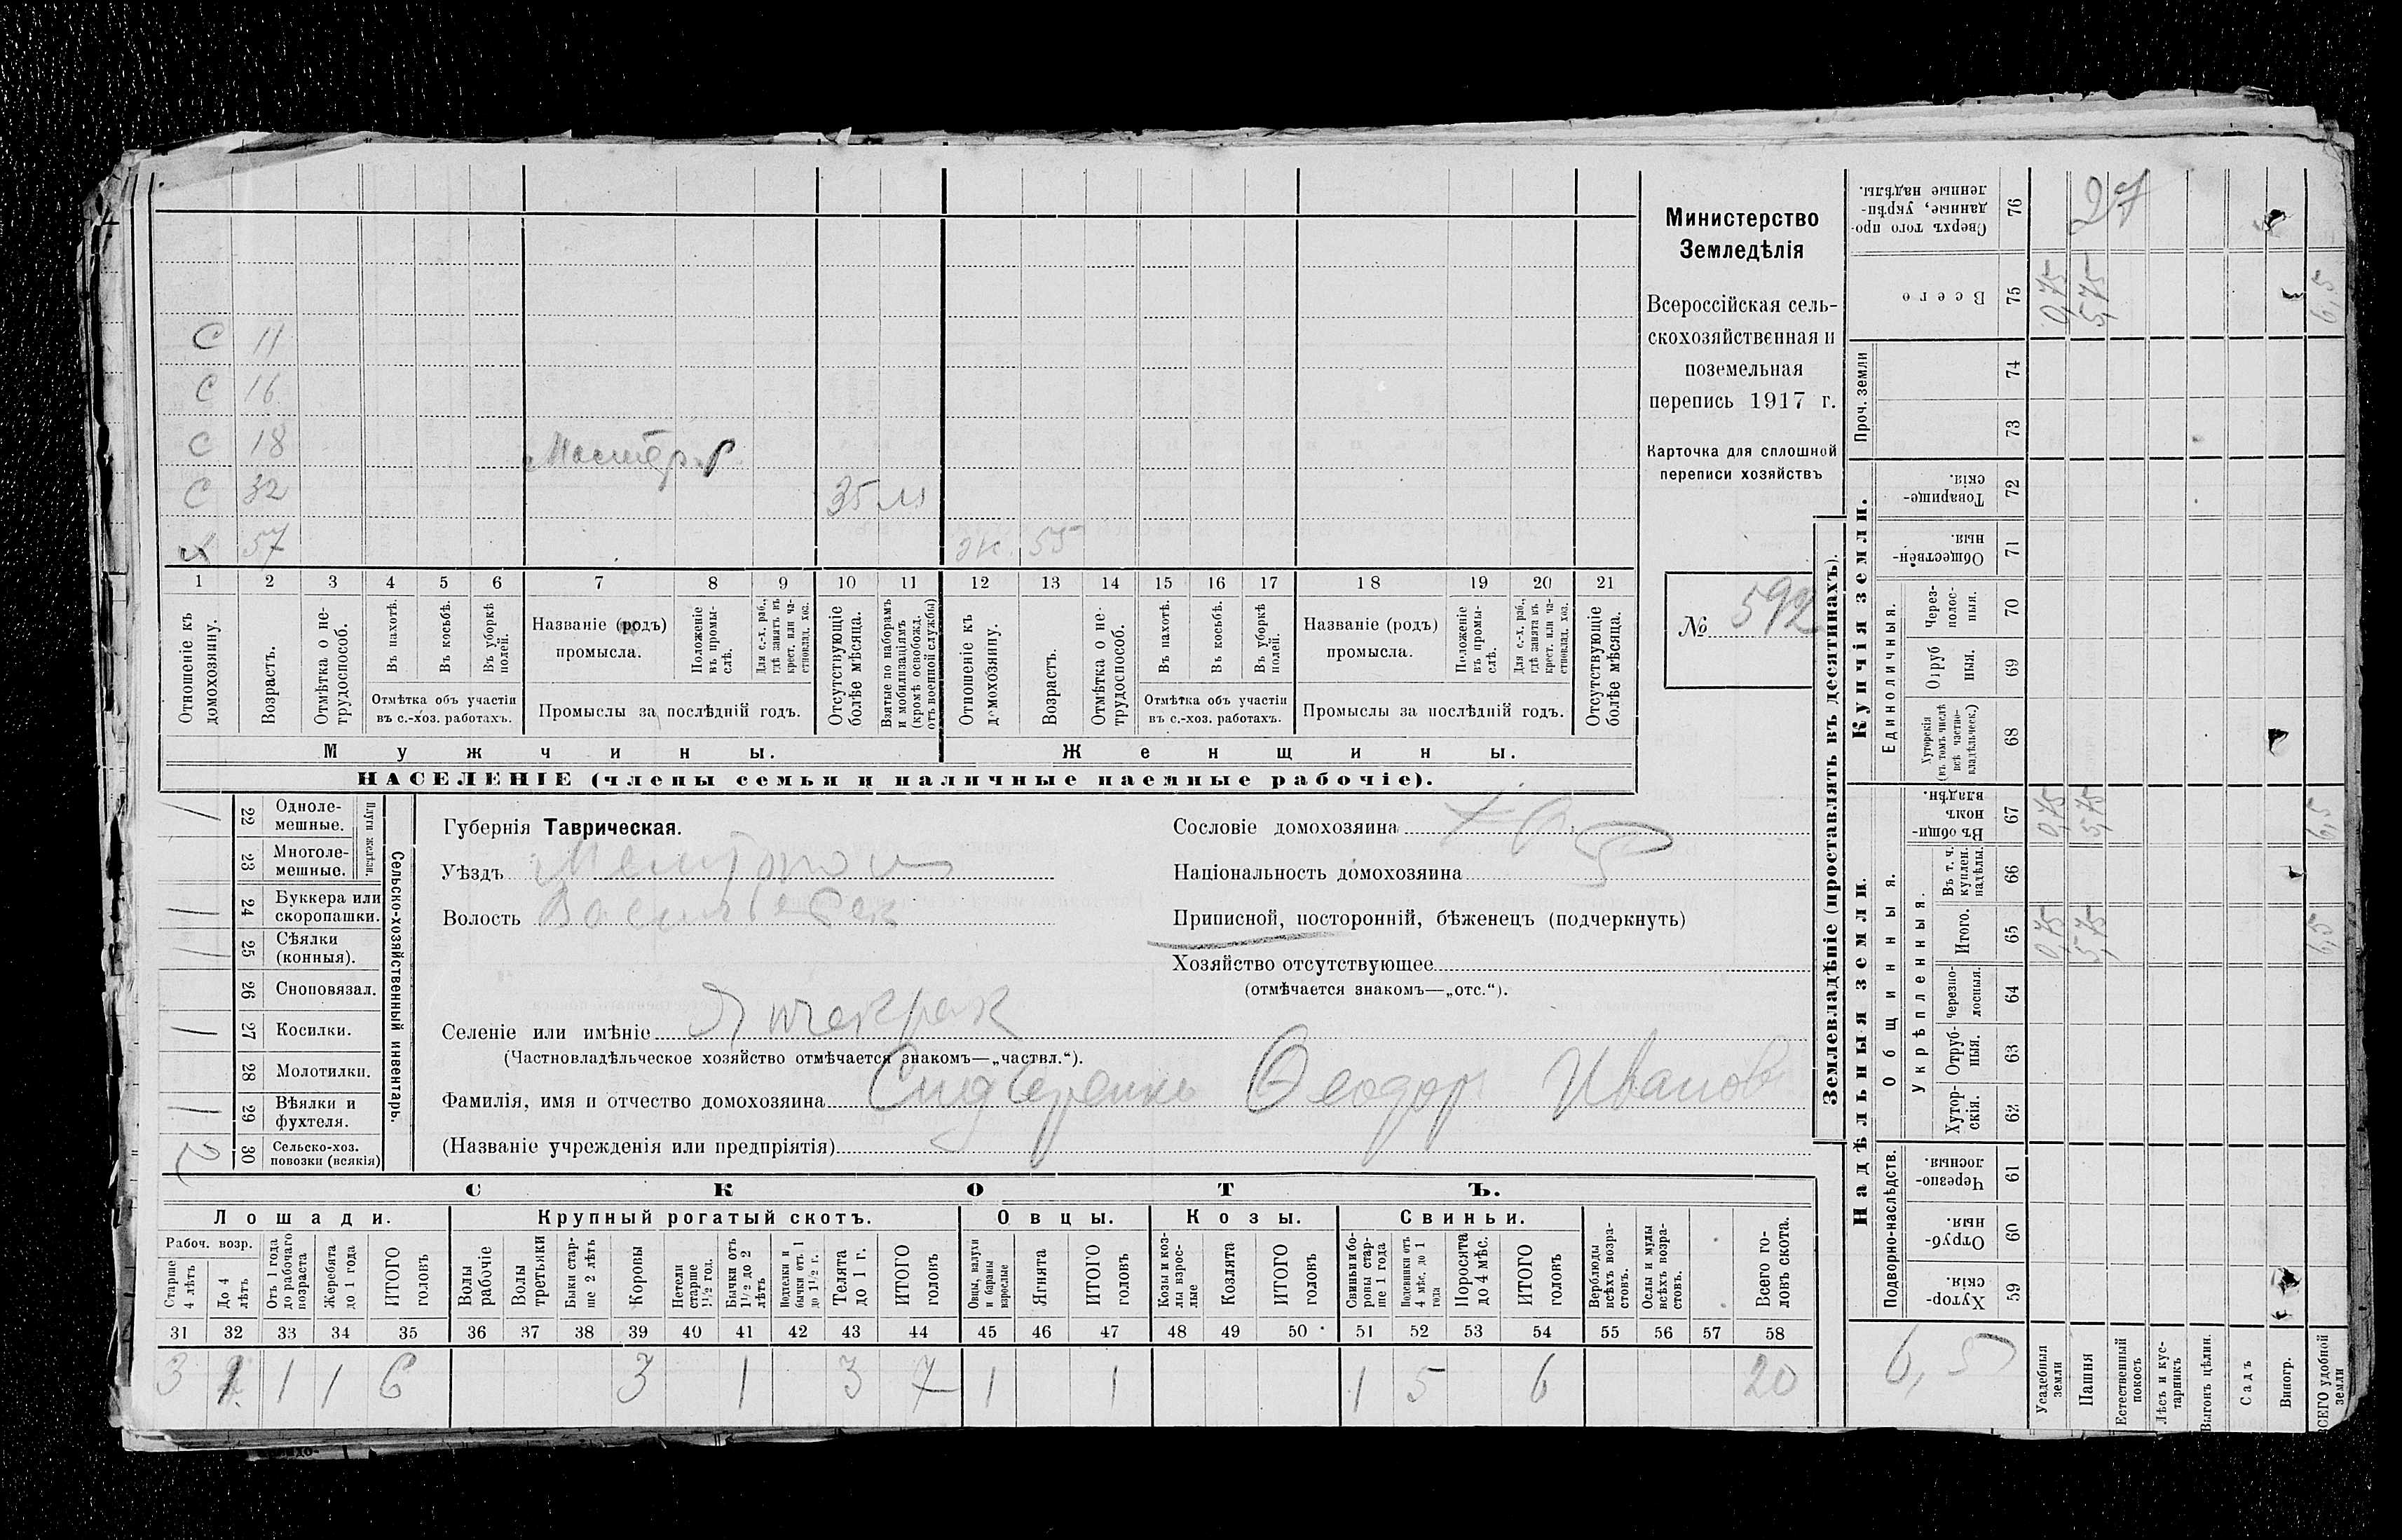 С 11
С 16
С 18 Мастер. Р
С 32 35 м
х 57 ж. 55
1 2 3 4 5 6 7 8 9 10 11 12 13 14 15 16 17 18 19 20 21
Отношеніе къ домохозяину.
Возрастъ.
Отмѣтка о не-трудоспособ.
Въ пахотѣ.
Въ косьбѣ.
Въ уборкѣ полей.
Отмѣтка объ участіи въ с.-хоз. работахъ.
Названіе (родъ) промысла.
Положеніе въ промы-слѣ.
Для с.-х. раб., гдѣ занятъ въ крест. или ча-стновлад. хоз.
Промыслы за послѣдній годъ.
Отсутствующіе болѣе мѣсяца.
Взятые по наборамъ и мобилизаціямъ (кромѣ освобожд. отъ военной службы)
Отношеніе къ домохозяину.
Возрастъ.
Отмѣтка о не-трудоспособ.
Въ пахотѣ.
Въ косьбѣ.
Въ уборкѣ полей.
Отмѣтка объ участіи въ с.-хоз. работахъ.
Названіе (родъ) промысла.
Положеніе въ промы-слѣ.
Для с.-х. раб., гдѣ занята въ крест. или ча-стновлад. хоз.
Промыслы за послѣдній годъ.
Отсутствующіе болѣе мѣсяца.
Мужчины. Женщины.
НАСЕЛЕНІЕ (члены семьи и наличные наемные рабочіе).
Министерство
Земледѣлія
Всероссійская сель-
скохозяйственная и
поземельная
перепись 1917 г.
Карточка для сплошной
переписи хозяйствъ
№ 592
Сельско-хозяйственный инвентарь.
Плуги желѣзн.
22 Одноле-мешные. 1
23 Многоле-мешные.
24 Буккера или скоропашки. 1
25 Сѣялки (конныя). 1
26 Сноповязал.
27 Косилки. 1
28 Молотилки.
29 Вѣялки и фухтеля. 1
30 Сельско-хоз. повозки (всякія) 2
Губернія Таврическая.
Уѣздъ Мелитопол
Волость Васильевск
Селеніе или имѣніе Янчекрак
(Частновладѣльческое хозяйство отмѣчается знакомъ—„частвл.“).
Фамилія, имя и отчество домохозяина Сидееренко Ѳеодор Иванов
(Названіе учрежденія или предпріятія)
Сословіе домохозяина
Національность домохозяина
Приписной, посторонній, бѣженецъ (подчеркнуть)
Хозяйство отсутствующее
(отмѣчается знакомъ—„отс.“).
СКОТЪ.
Лошади. Крупный рогатый скотъ. Овцы. Козы. Свиньи.
Рабоч. возр.
Старше 4 лѣтъ
До 4 лѣтъ
Отъ 1 года до рабочаго возраста
Жеребята до 1 года
ИТОГО головъ
Волы рабочіе
Волы третьяки
Быки стар-ше 2 лѣтъ
Коровы
Нетели старше 1½ год.
Бычки отъ 1½ до 2 лѣтъ
Подтелки и бычки отъ 1 до 1½ г.
Телята до 1 г.
ИТОГО головъ
Овцы, валухи и бараны взрослые
Ягнята
ИТОГО головъ
Козы и коз-лы взрос-лые
Козлята
ИТОГО головъ
Свиньи и бо-ровы стар-ше 1 года
Подсвинки отъ 4 мѣс. до 1 года
Поросята до 4 мѣс.
ИТОГО головъ
Верблюды всѣхъ возра-стовъ.
Ослы и мулы всѣхъ возра-стовъ.
Всего го-ловъ скота.
31 32 33 34 35 36 37 38 39 40 41 42 43 44 45 46 47 48 49 50 51 52 53 54 55 56 57 58
3 1 1 1 6 3 1 3 7 1 1 1 5 6 20
Землевладѣніе (проставлять въ десятинахъ).
Купчія земли.
Надѣльныя земли.
76 Сверхъ того про-данные, укрѣп-ленные надѣлы. 27
75 Всего 0,75 5,75 6,5
Проч. земли
74
73
72 Товарище-скія.
71 Обществен-ныя.
Единоличныя.
70 Через-полос-ныя.
69 Отруб ныя.
68 Хуторскія (въ томъ числѣ всѣ частно-владѣльческ.)
Общинныя.
67 Въ общи-номъ владѣн. 0,75 5,75 6,5
Укрѣпленныя.
66 Въ т. ч. куплен. надѣлы.
65 Итого. 0,75 5,75 6,5
64 Черезпо-лосныя.
63 Отруб-ныя.
62 Хутор-скія.
Подворно-наслѣдств.
61 Черезпо-лосныя.
60 Отруб-ныя.
59 Хутор-скія.
6,5
Усадебныя земли
Пашня
Естественный покосъ
Лѣсъ и кус-тарникъ
Выгонъ цѣлин.
Садъ
Виногр.
ВСЕГО удобной земли